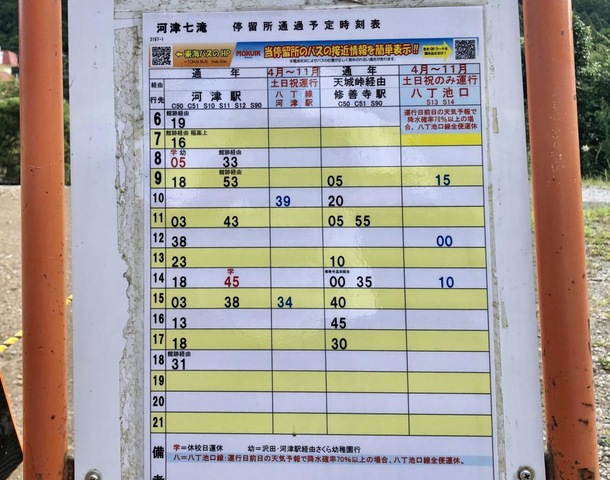 河津七滝 停留所通過予定時刻表
3167-1
←東海バスのHP MOKUIK 当停留所のバスの接近情報を簡単表示!!
経由 通年 4月～11月 通年 4月～11月
土日祝運行 天城峠経由 土日祝のみ運行
行先 河津駅 八丁線 河津駅 修善寺駅 八丁池口
C50 C51 S10 S11 S12 S90 C50 C51 S90 S13 S14
6 館跡経由 19 運行日前日の天気予報で降水確率70%以上の場合、八丁池口線全便運休
7 館跡経由 稲高上 16
8 学 幼 05 館跡経由 33
9 18 館跡経由 53 05 15
10 39 20
11 03 43 05 55
12 38 00
13 23 10
14 18 学 45 00 35 10
15 03 38 34 40
16 13 45
17 18 30
18 館跡経由 31
19
20
21
備考 学=休校日運休 幼=沢田・河津駅経由さくら幼稚園行
八=八丁池口線:運行日前日の天気予報で降水確率70%以上の場合、八丁池口線全便運休。